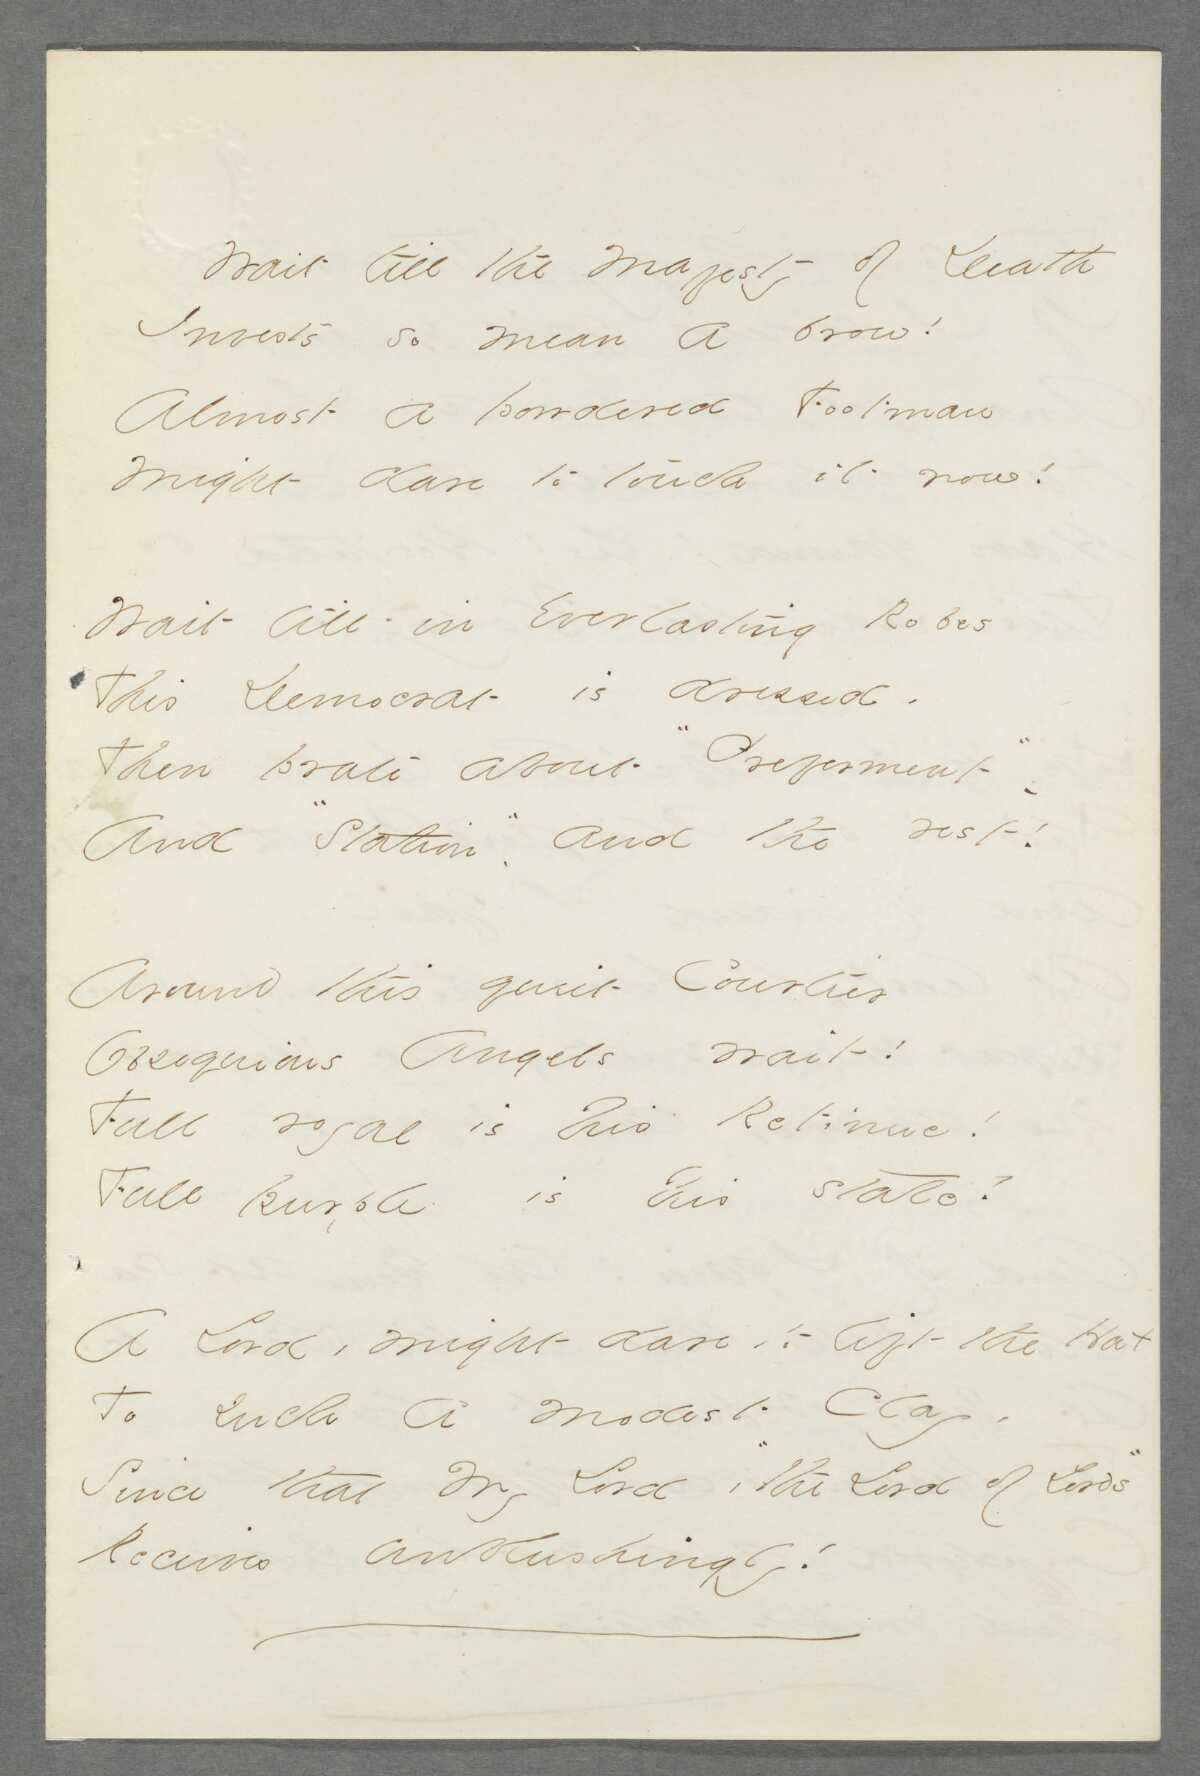 Wait till the Majesty of Death
Invests so mean a brow!
Almost a powdered Footman
Might dare to touch it now!
Wait till in Everlasting Robes
This Democrat is dressed,
Then prate about "Preferment" -
And "Station", and the rest!
Around this quiet Courtier
Obsequious Angels wait!
Full royal is his Retinue!
Full purple is his state!
A Lord, might dare to lift the Hat
To such a Modest Clay,
Since that My Lord, "the Lord of Lords"
Receives unblushingly!